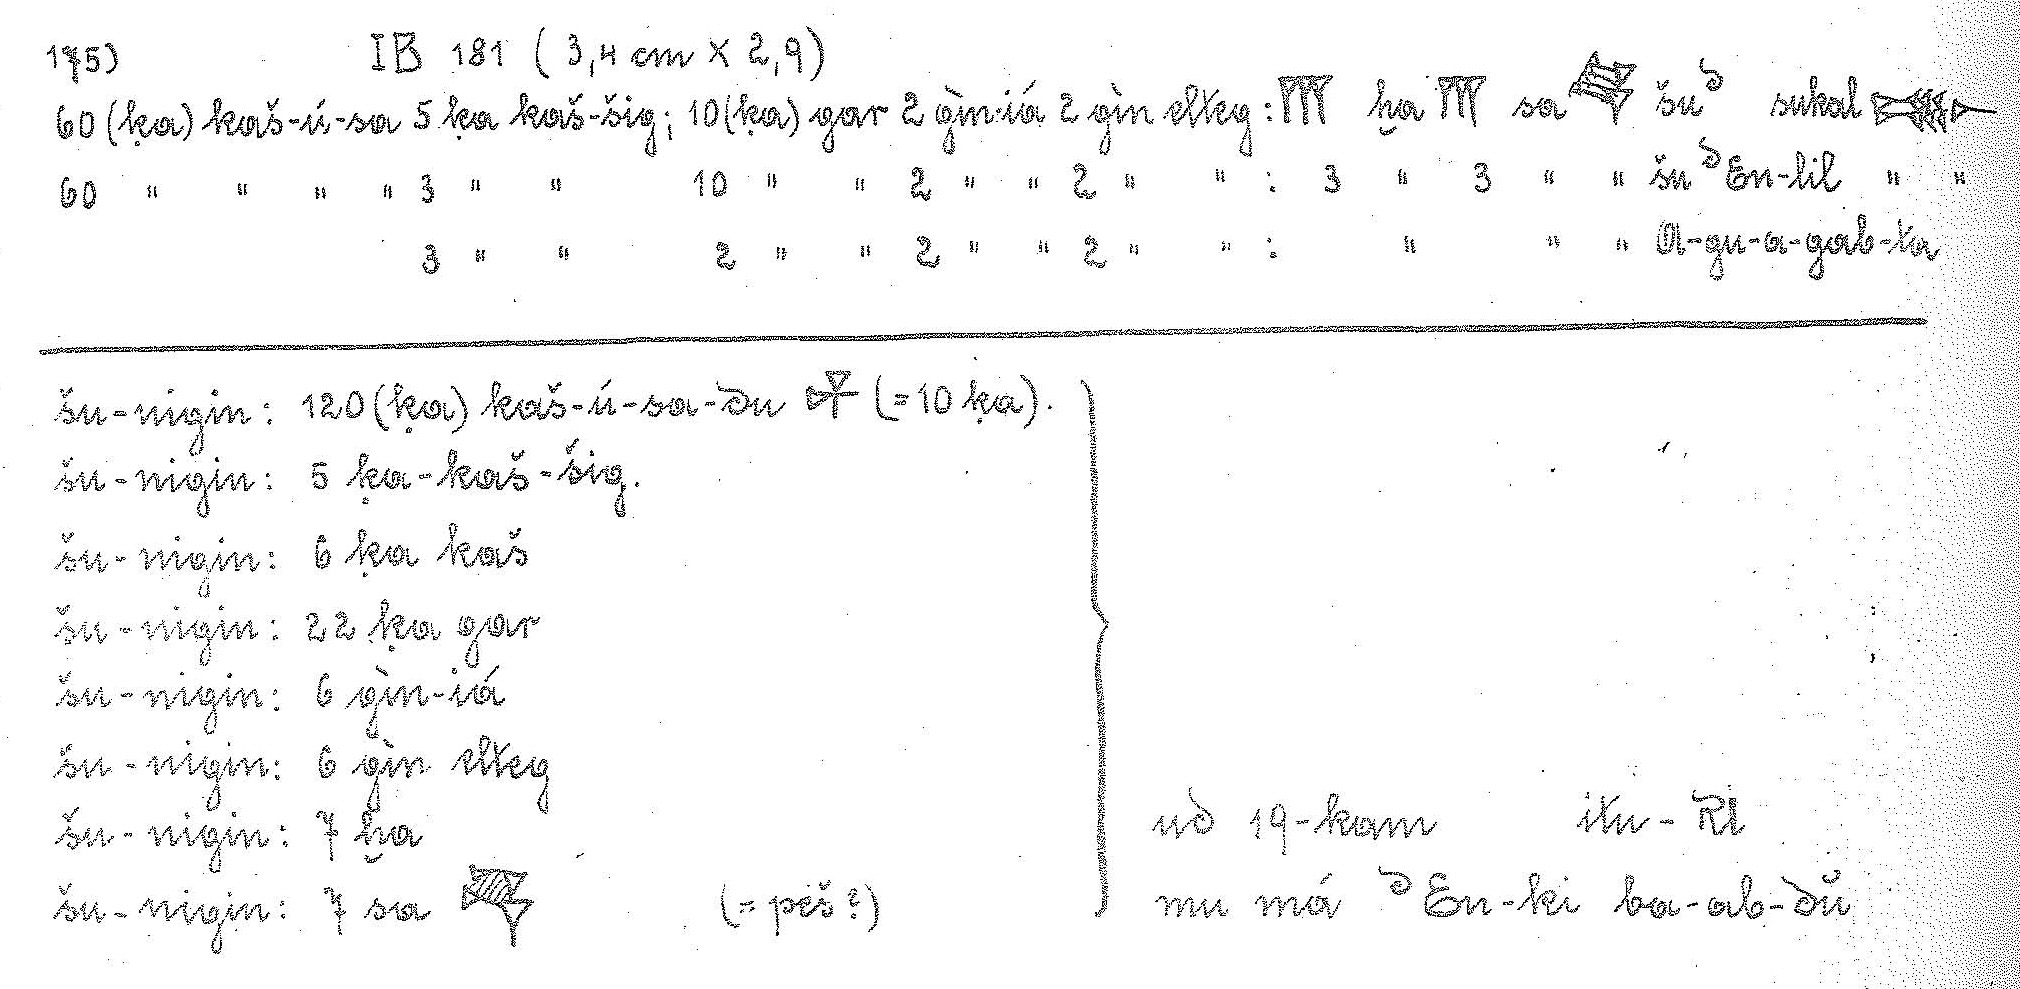 175) IB 181 (3,4 cm × 2,9)
60 (ḳa) kaš-ú-sa 5 ḳa kaš-šig; 10 (ḳa) gar 2 gìn-iá 2 gìn elteg : 𒐈 ḫa 𒐈 sa šu ᵈ sukal
60 " " " " 3 " " 10 " " 2 " " 2 " " : 3 " 3 " " šu ᵈEn-lil " "
3 " " 2 " " 2 " " 2 " " : " " " A-gu-a-gab-ta
šu-nigin: 120 (ḳa) kaš-ú-sa-du (=10 ḳa).
šu-nigin: 5 ḳa-kaš-šig.
šu-nigin: 6 ḳa kaš
šu-nigin: 22 ḳa gar
šu-nigin: 6 gìn-iá
šu-nigin: 6 gìn elteg
šu-nigin: 7 ḫa
šu-nigin: 7 sa (= peš?)
ud 19-kam itu-Ri
mu má ᵈEn-ki ba-ab-dŭ